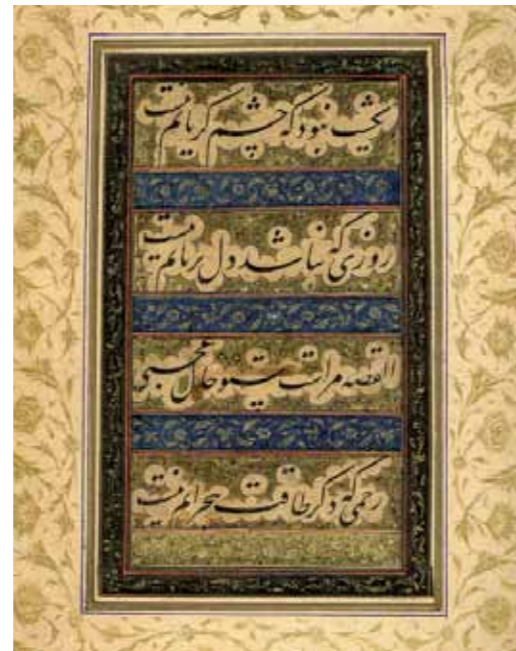 یکشب نبود که چشم گریانم نیست
روزی که نباشد دل بریانم نیست
القصه مراست بیتو حال عجبی
رحمی که دگر طاقت هجرانم نیست